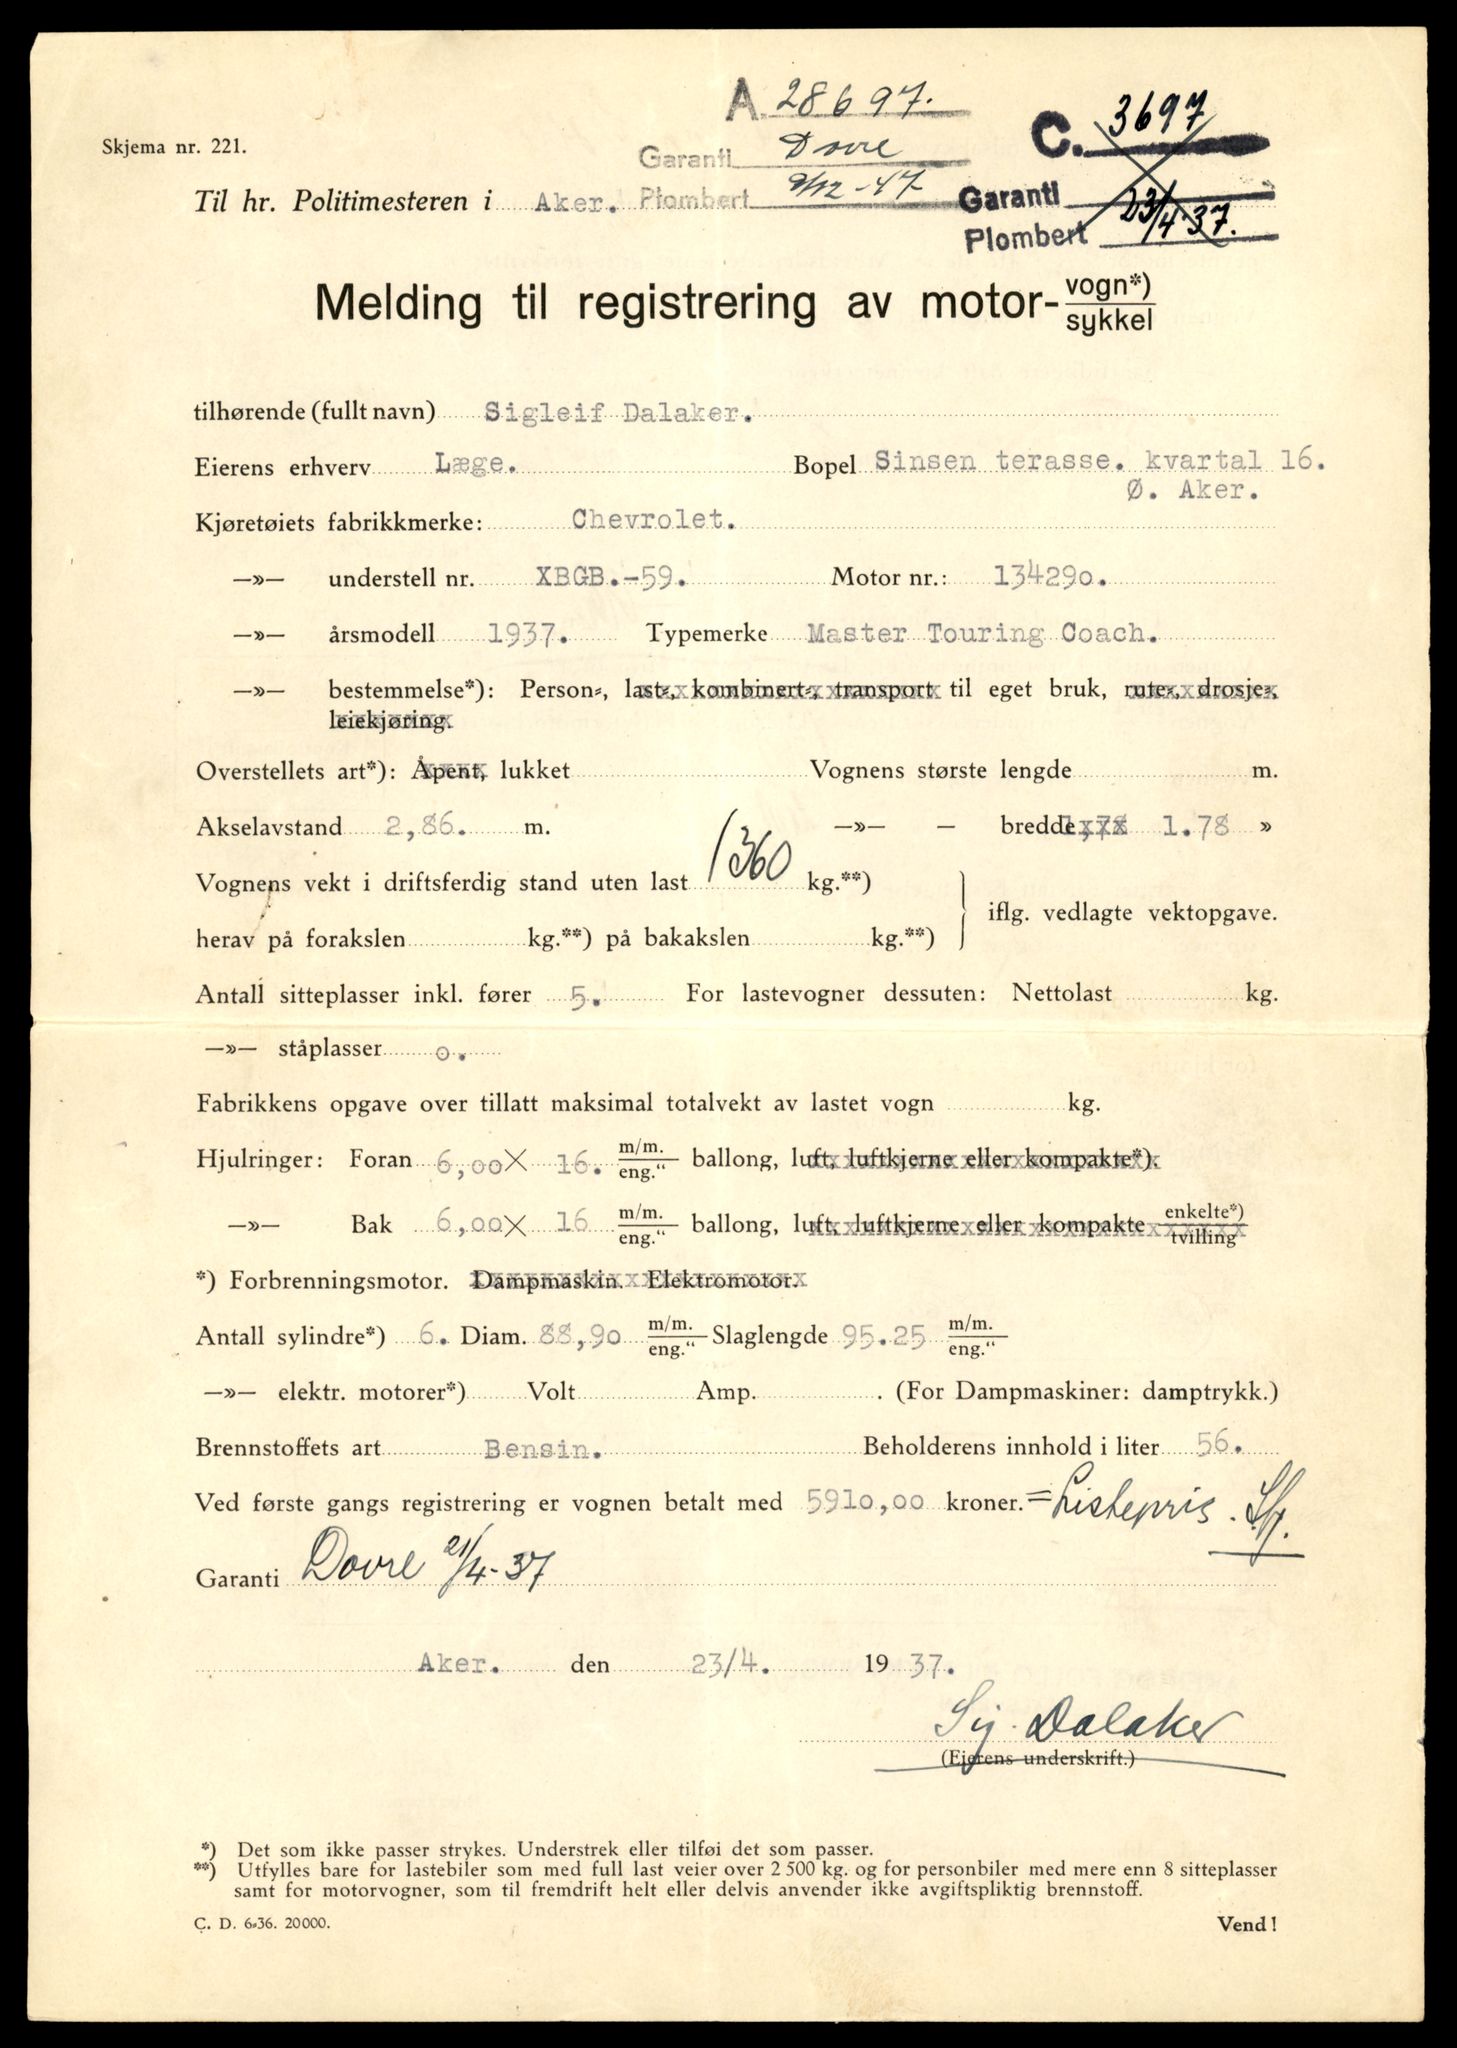 A. 28697.
C. 3697
Skjema nr. 221.
Garanti Dovre
Til hr. Politimesteren i Aker. Plombert 9/12-47
Garanti
Plombert 23/4 37.
Melding til registrering av motor- vogn*) sykkel
tilhørende (fullt navn) Sigleif Dalaker.
Eierens erhverv Læge. Bopel Sinsen terasse. kvartal 16.
Ø. Aker.
Kjøretøiets fabrikkmerke: Chevrolet.
—»— understell nr. XBGB.-59. Motor nr.: 134290.
—»— årsmodell 1937. Typemerke Master Touring Coach.
—»— bestemmelse*): Person-, last-, kombinert-, transport til eget bruk, rute-, drosje-,
leiekjøring.
Overstellets art*): Åpent, lukket Vognens største lengde m.
Akselavstand 2,86. m. —»— – bredde 1,78 1.78 »
Vognens vekt i driftsferdig stand uten last 1360 kg.**)
iflg. vedlagte vektopgave.
herav på forakslen kg.**) på bakakslen kg.**)
Antall sitteplasser inkl. fører 5. For lastevogner dessuten: Nettolast kg.
—»— ståplasser o.
Fabrikkens opgave over tillatt maksimal totalvekt av lastet vogn kg.
Hjulringer: Foran 6,00 X 16. m/m. eng." ballong, luft, luftkjerne eller kompakte*).
—»— Bak 6,00 X 16 m/m. eng." ballong, luft, luftkjerne eller kompakte enkelte*) tvilling
*) Forbrenningsmotor. Dampmaskin. Elektromotor.
Antall sylindre*) 6. Diam. 88,90 m/m. eng." Slaglengde 95.25 m/m. eng."
—»— elektr. motorer*) Volt Amp. . (For Dampmaskiner: damptrykk.)
Brennstoffets art Bensin. Beholderens innhold i liter 56.
Ved første gangs registrering er vognen betalt med 5910,00 kroner. = Listepris.
Garanti Dovre 21/4-37
Aker. den 23/4. 19 37.
Sig. Dalaker
(Eierens underskrift.)
*) Det som ikke passer strykes. Understrek eller tilføi det som passer.
**) Utfylles bare for lastebiler som med full last veier over 2 500 kg. og for personbiler med mere enn 8 sitteplasser
samt for motorvogner, som til fremdrift helt eller delvis anvender ikke avgiftspliktig brennstoff.
C. D. 6-36. 20000. Vend!